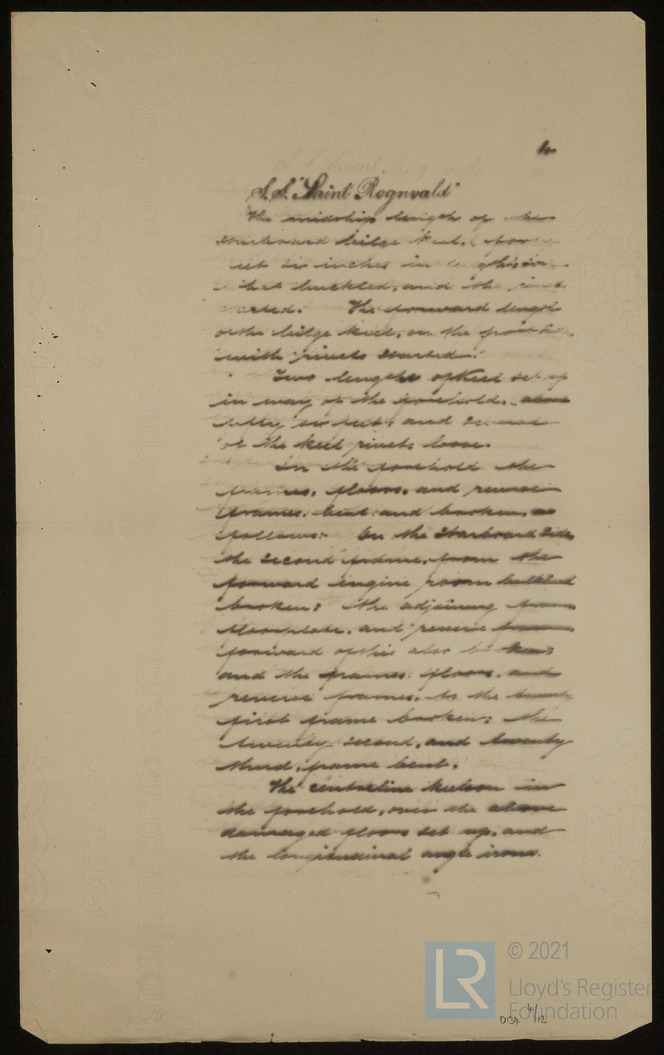 4
S.S. "Saint Rognvald"
The midship length of the
starboard bilge keel,
six inches in
buckled, and the
started. The forward length
of the bilge keel, on the port side
with rivets started.
Two lengths of keel set up
in way of the forehold, about
fifty six feet, and several
of the keel rivets loose.
In the forehold the
frames, floors, and reverse
frames, bent and broken as
follows: On the starboard side,
the second frame, from the
forward engine room bulkhead
broken: the adjoining frame
floorplate, and reverse frame
forward of this also broken;
and the frames, floors, and
reverse frames, to the twenty
first frame broken; the
twenty second, and twenty
third, frame bent.
The centreline keelson in
the forehold, over the above
damaged floors set up, and
the longitudinal angle irons.
© 2021
Lloyd's Register
Foundation
LR
0134 4/12